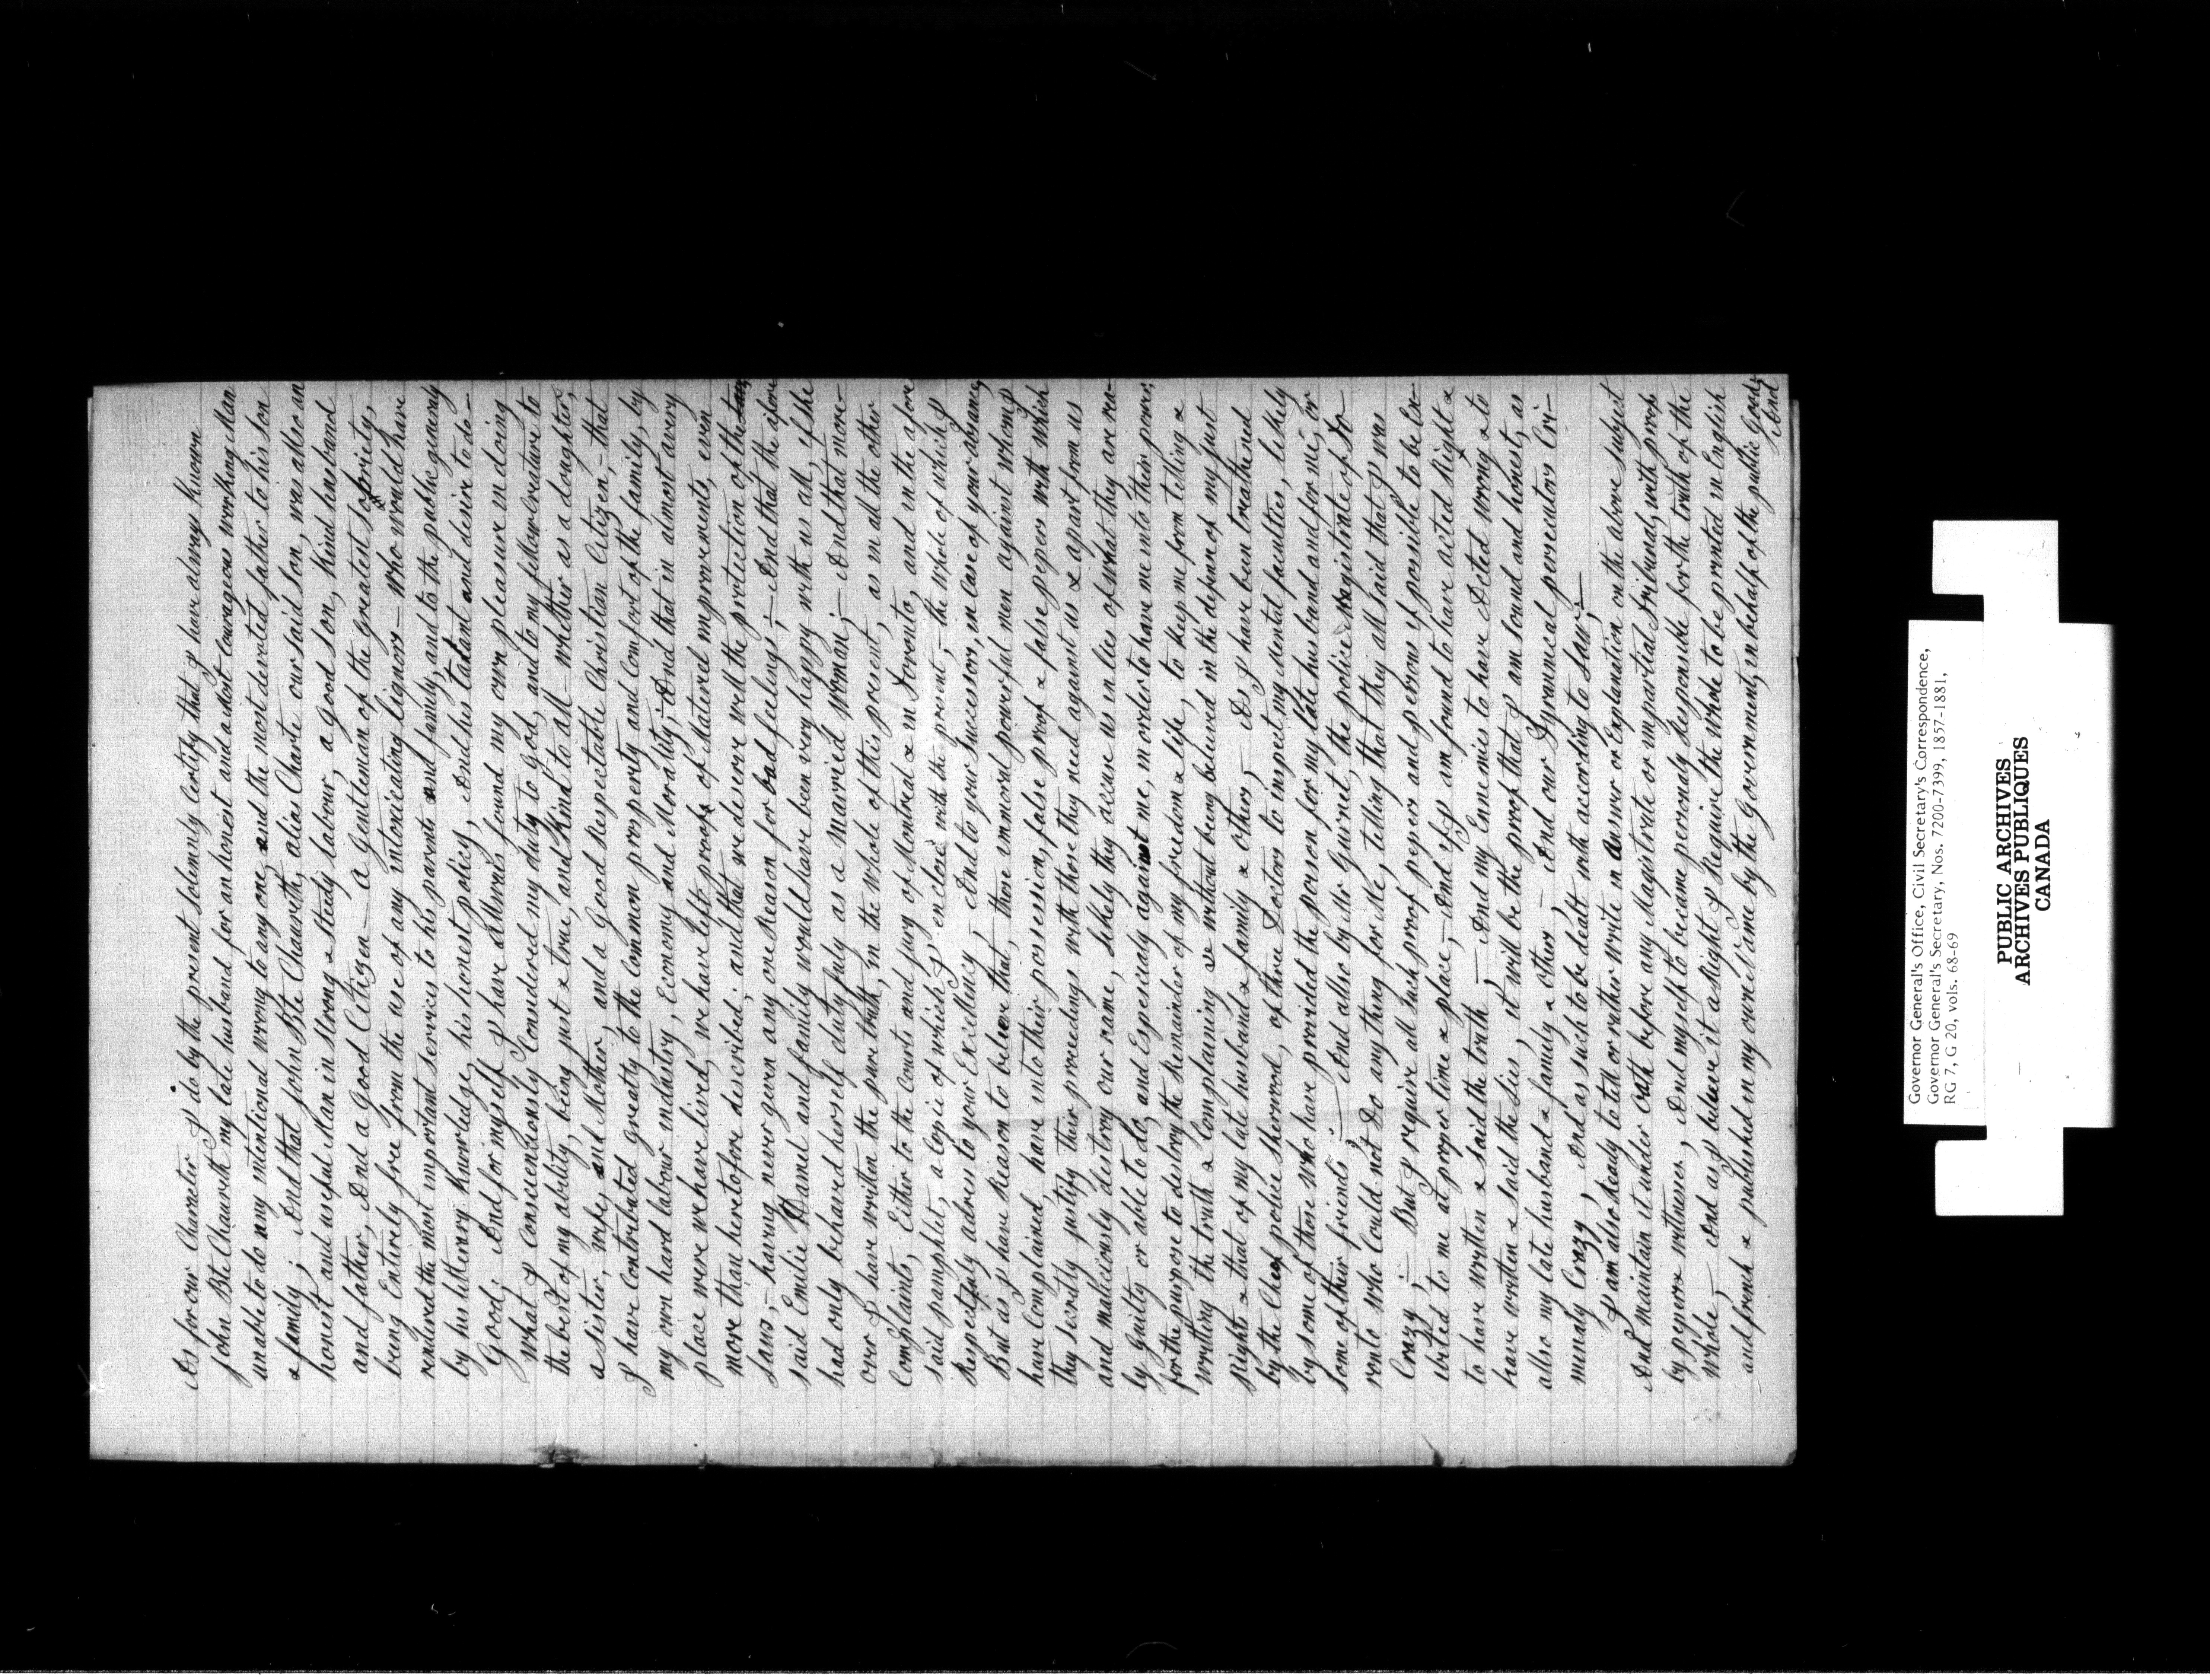 As for our Character I do by the present solemnly Certify that I have always Known
John Bte Chauvith my late husband for an honest and a most Courageous working Man
unable to do any intentional wrong to any one, and the most devoted father to his son
& family; And that John Bte Chauvith, alias Charte our said son, was also an
honest and useful Man in strong & Steady labour, a good son, Kind husband
and father, And a good Citizen — A gentleman of the greatest sobriety,
being Entirely free from the use of any intoxicating liquors — who would have
rendered the most important services to his parents and family, and to the public generaly
by his litterary Knowledge, his honest policy, And his talant and desire to do —
Good; And for myself I have Allways found my own pleasure in doing
what I Consciensiously Considered my duty to God, and to my fellowcreature to
the best of my ability, being just & true, and Kind to all — whither as a doughter,
a sister, wife, and Mother, and a Good Respectable Christian Citizen, — that
I have Contributed greatly to the Common prosperity and Comfort of the family, by
my own hard labour industry, Economy and Morality; And that in almost every
place were we have lived, we have left proofs of Matered improvements, even
more than heretofore described; and that we deserve well the protection of the
Laws; — having never geven any one Reason for bad feelings; — And that the above
said Emilie Hamel and family would have been very happy with us all, if she
had only behaved herself dutyfuly as a Married Woman; — And that more-
over I have written the pure truth, in the whole of this present, as in all the other
Complaints, Either to the Courts and jury of Montreal & in Toronto, and in the afore
said pamphlet, a Copie of which I enclose with the present — the whole of which I
Respectfuly adress to your Excellency — And to your Successor, in Case of your absence,
But as I have Reason to beleive that, those immoral powerful men against whom I
have Complained, have into their possession, false proof & false pepers with which
they secretly justify their proceedings with those they need against us & apart from us
and maleciously destroy our name, likely they accuse us in lies of what they are rea-
ly guilty or able to do, and Especialy against me, in order to have me into their power,
for the purpose to destroy the Remainder of my freedom & life, to keep me from telling &
writting the truth & Complaining & without being beleived in the defence of my just
Rights & that of my late husband & family & others, — As I have been treathened
by the Cheef police Sherwood, of three Doctors to inspect my Mental faculties, likely
by some of those who have poisoned the poison for my late husband and for me, or
some of their friends; — And also by Mr Gurnet, the police Magistrate of To-
ronto who Could not Do any thing for Me, telling that they all said that I was
Crazy; — But I require all such proof pepers and persons if possible to be Ex-
ibited to me at proper time & place, — And if I am found to have acted Right &
to have written & said the truth, — And my Ennemies to have Acted wrong & to
have written & said the lies, it will be the proof that I am sound and honest, as
also my late husband & family & others, — And our Tyrannical persecutors Cri-
minaly Crazy, And as such to be dealt with according to Law; —
I am also Ready to tell or rather write in Answer or Explanation on the above subject
And maintain it under Oath before any Magistrate or impartial Tribunal, with proof
by pepers & wittnesses, And myself to become personaly Responsible for the truth of the
whole, — And as I beleive it a Right I Require the whole to be printed in English
and french & published in my own Name by the Government, in behalf of the public Good;
And
Governor General's Office, Civil Secretary's Correspondence,
Governor General's Secretary, Nos. 7200-7399, 1857-1881,
RG 7, G 20, vols. 68-69
PUBLIC ARCHIVES
ARCHIVES PUBLIQUES
CANADA